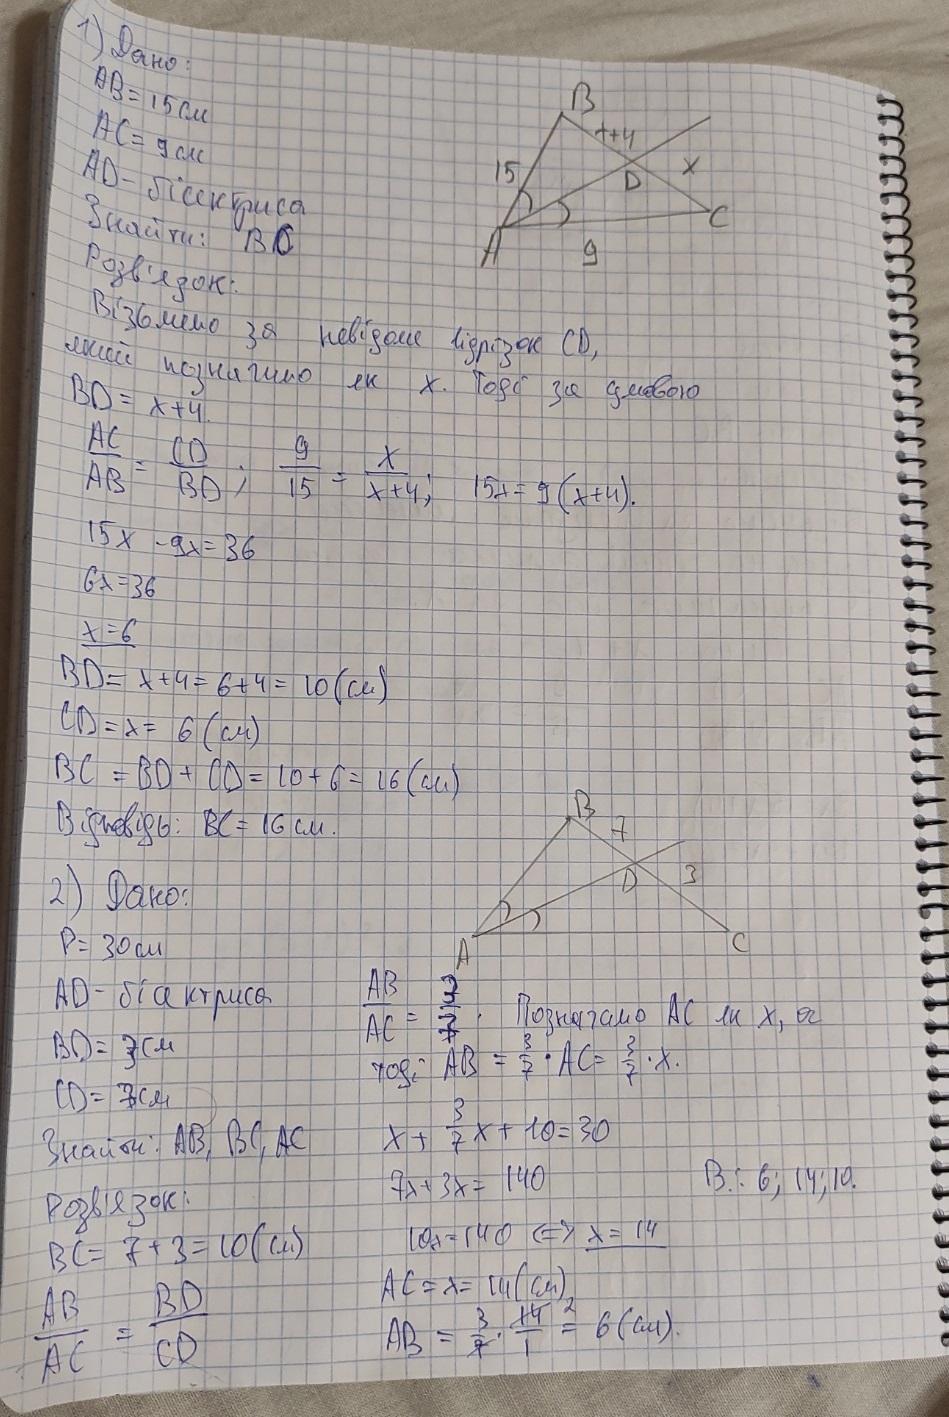 1) Дано:
AB = 15 см
AC = 9 см
AD - бісектриса
Знайти: BC
Розв'язок:
B
x+4
15
D
x
A
C
9
Візьмемо за невідоме відрізок CD,
який позначимо як x. Тоді за умовою
BD = x+4.
AC/AB = CD/BD; 9/15 = x/x+4; 15x = 9(x+4).
15x - 9x = 36
6x = 36
x = 6
BD = x+4 = 6+4 = 10 (см)
CD = x = 6 (см)
BC = BD + CD = 10 + 6 = 16 (см)
Відповідь: BC = 16 см.
2) Дано:
P = 30 см
AD - бісектриса
BD = 3 см
CD = 7 см
Знайти: AB, BC, AC
Розв'язок:
BC = 7 + 3 = 10 (см)
AB/AC = BD/CD
B
7
D
3
A
C
AB/AC = 3/7. Позначимо AC як x, а
тоді AB = 3/7 · AC = 3/7 · x.
x + 3/7 x + 10 = 30
7x + 3x = 140
10x = 140 <=> x = 14
AC = x = 14 (см)
AB = 3/7 · 14/1 2 = 6 (см).
В.: 6; 14; 10.